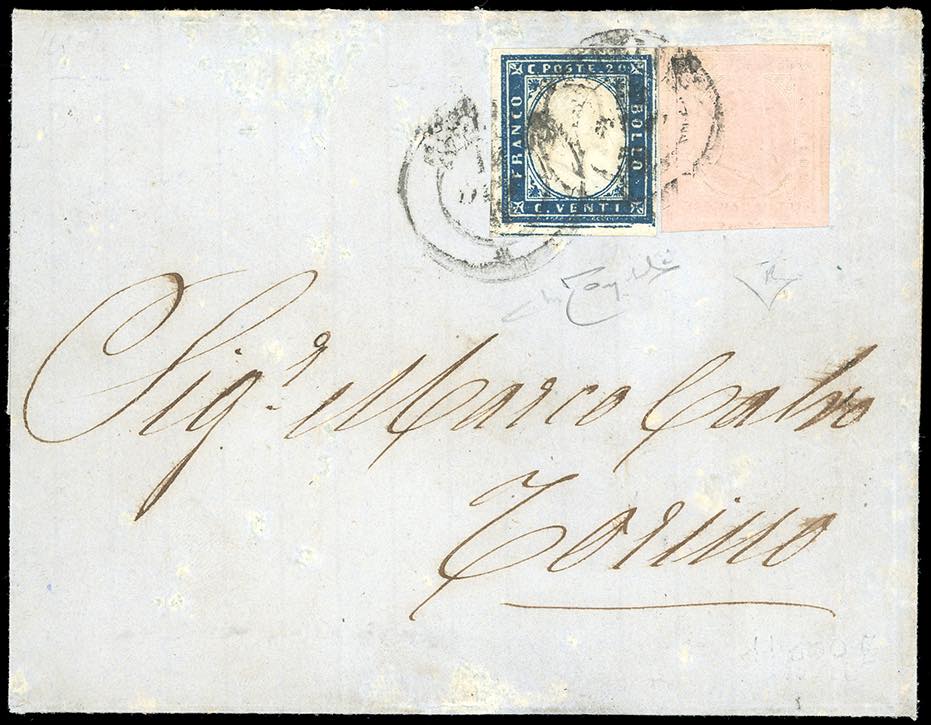 C. POSTE. 20
FRANCO
BOLLO
C. VENTI
Sig.r Marco Calvo
Torino